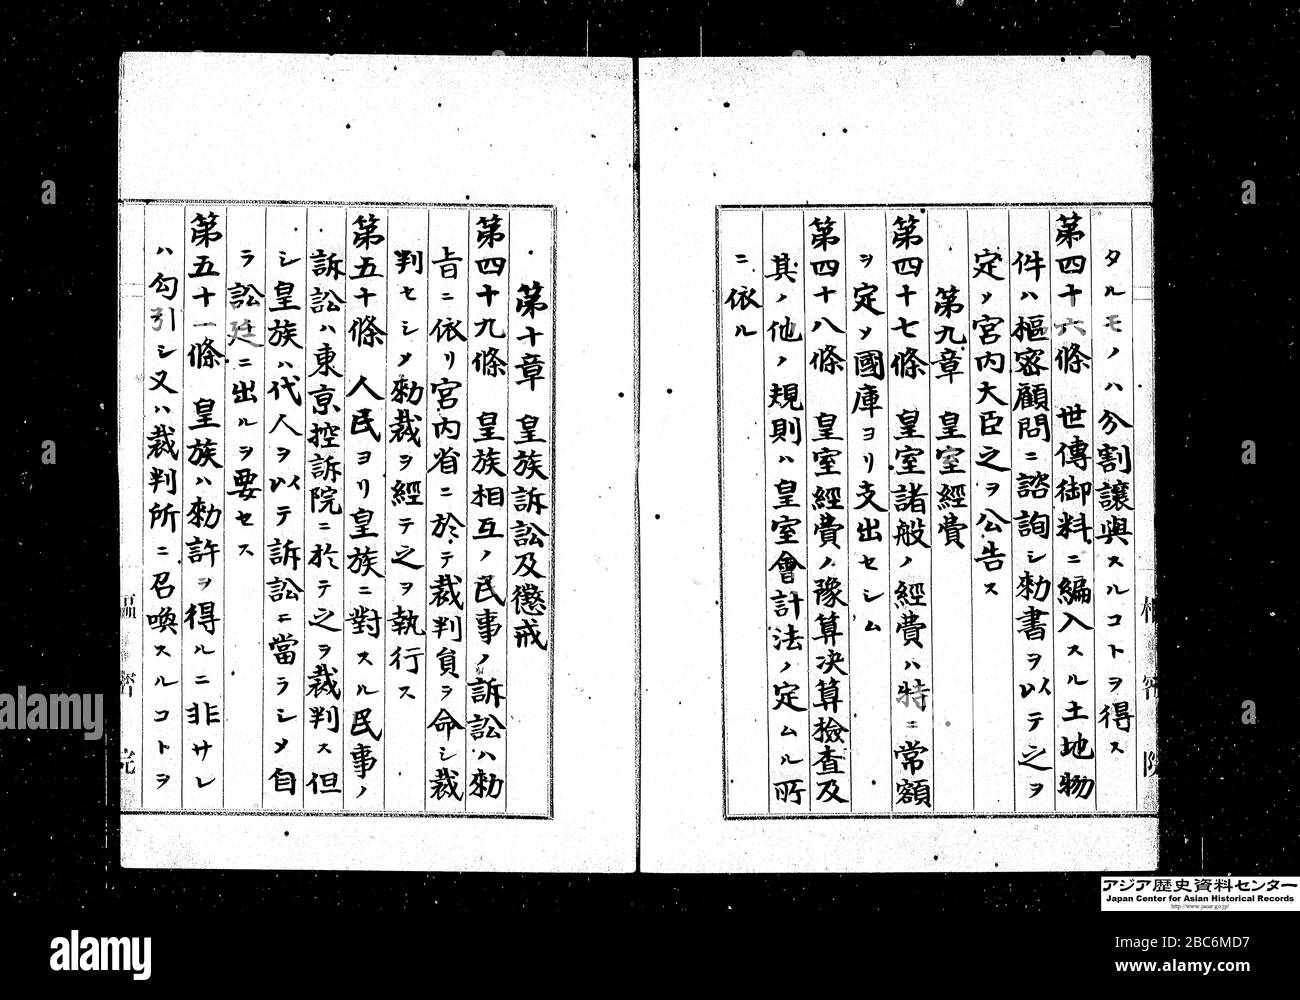 タルモノハ分割讓與スルコトヲ得ス
第四十六條 世傳御料ニ編入スル土地物
件ハ樞密顧問ニ諮詢シ勅書ヲ以テ之ヲ
定メ宮内大臣之ヲ公告ス
第九章 皇室經費
第四十七條 皇室諸般ノ經費ハ特ニ常額
ヲ定メ國庫ヨリ支出セシム
第四十八條 皇室經費ノ豫算決算檢査及
其ノ他ノ規則ハ皇室會計法ノ定ムル所
ニ依ル
第十章 皇族訴訟及懲戒
第四十九條 皇族相互ノ民事ノ訴訟ハ勅
旨ニ依リ宮内省ニ於テ裁判員ヲ命シ裁
判セシメ勅裁ヲ經テ之ヲ執行ス
第五十條 人民ヨリ皇族ニ對スル民事ノ
訴訟ハ東京控訴院ニ於テ之ヲ裁判ス但
シ皇族ハ代人ヲ以テ訴訟ニ當ラシメ自
ラ訟廷ニ出ルヲ要セス
第五十一條 皇族ハ勅許ヲ得ルニ非サレ
ハ勾引シ又ハ裁判所ニ召喚スルコトヲ
アジア歴史資料センター
Japan Center for Asian Historical Records
http://www.jacar.go.jp/
a
a
a
a
a
a
alamy
Image ID: 2BC6MD7
www.alamy.com